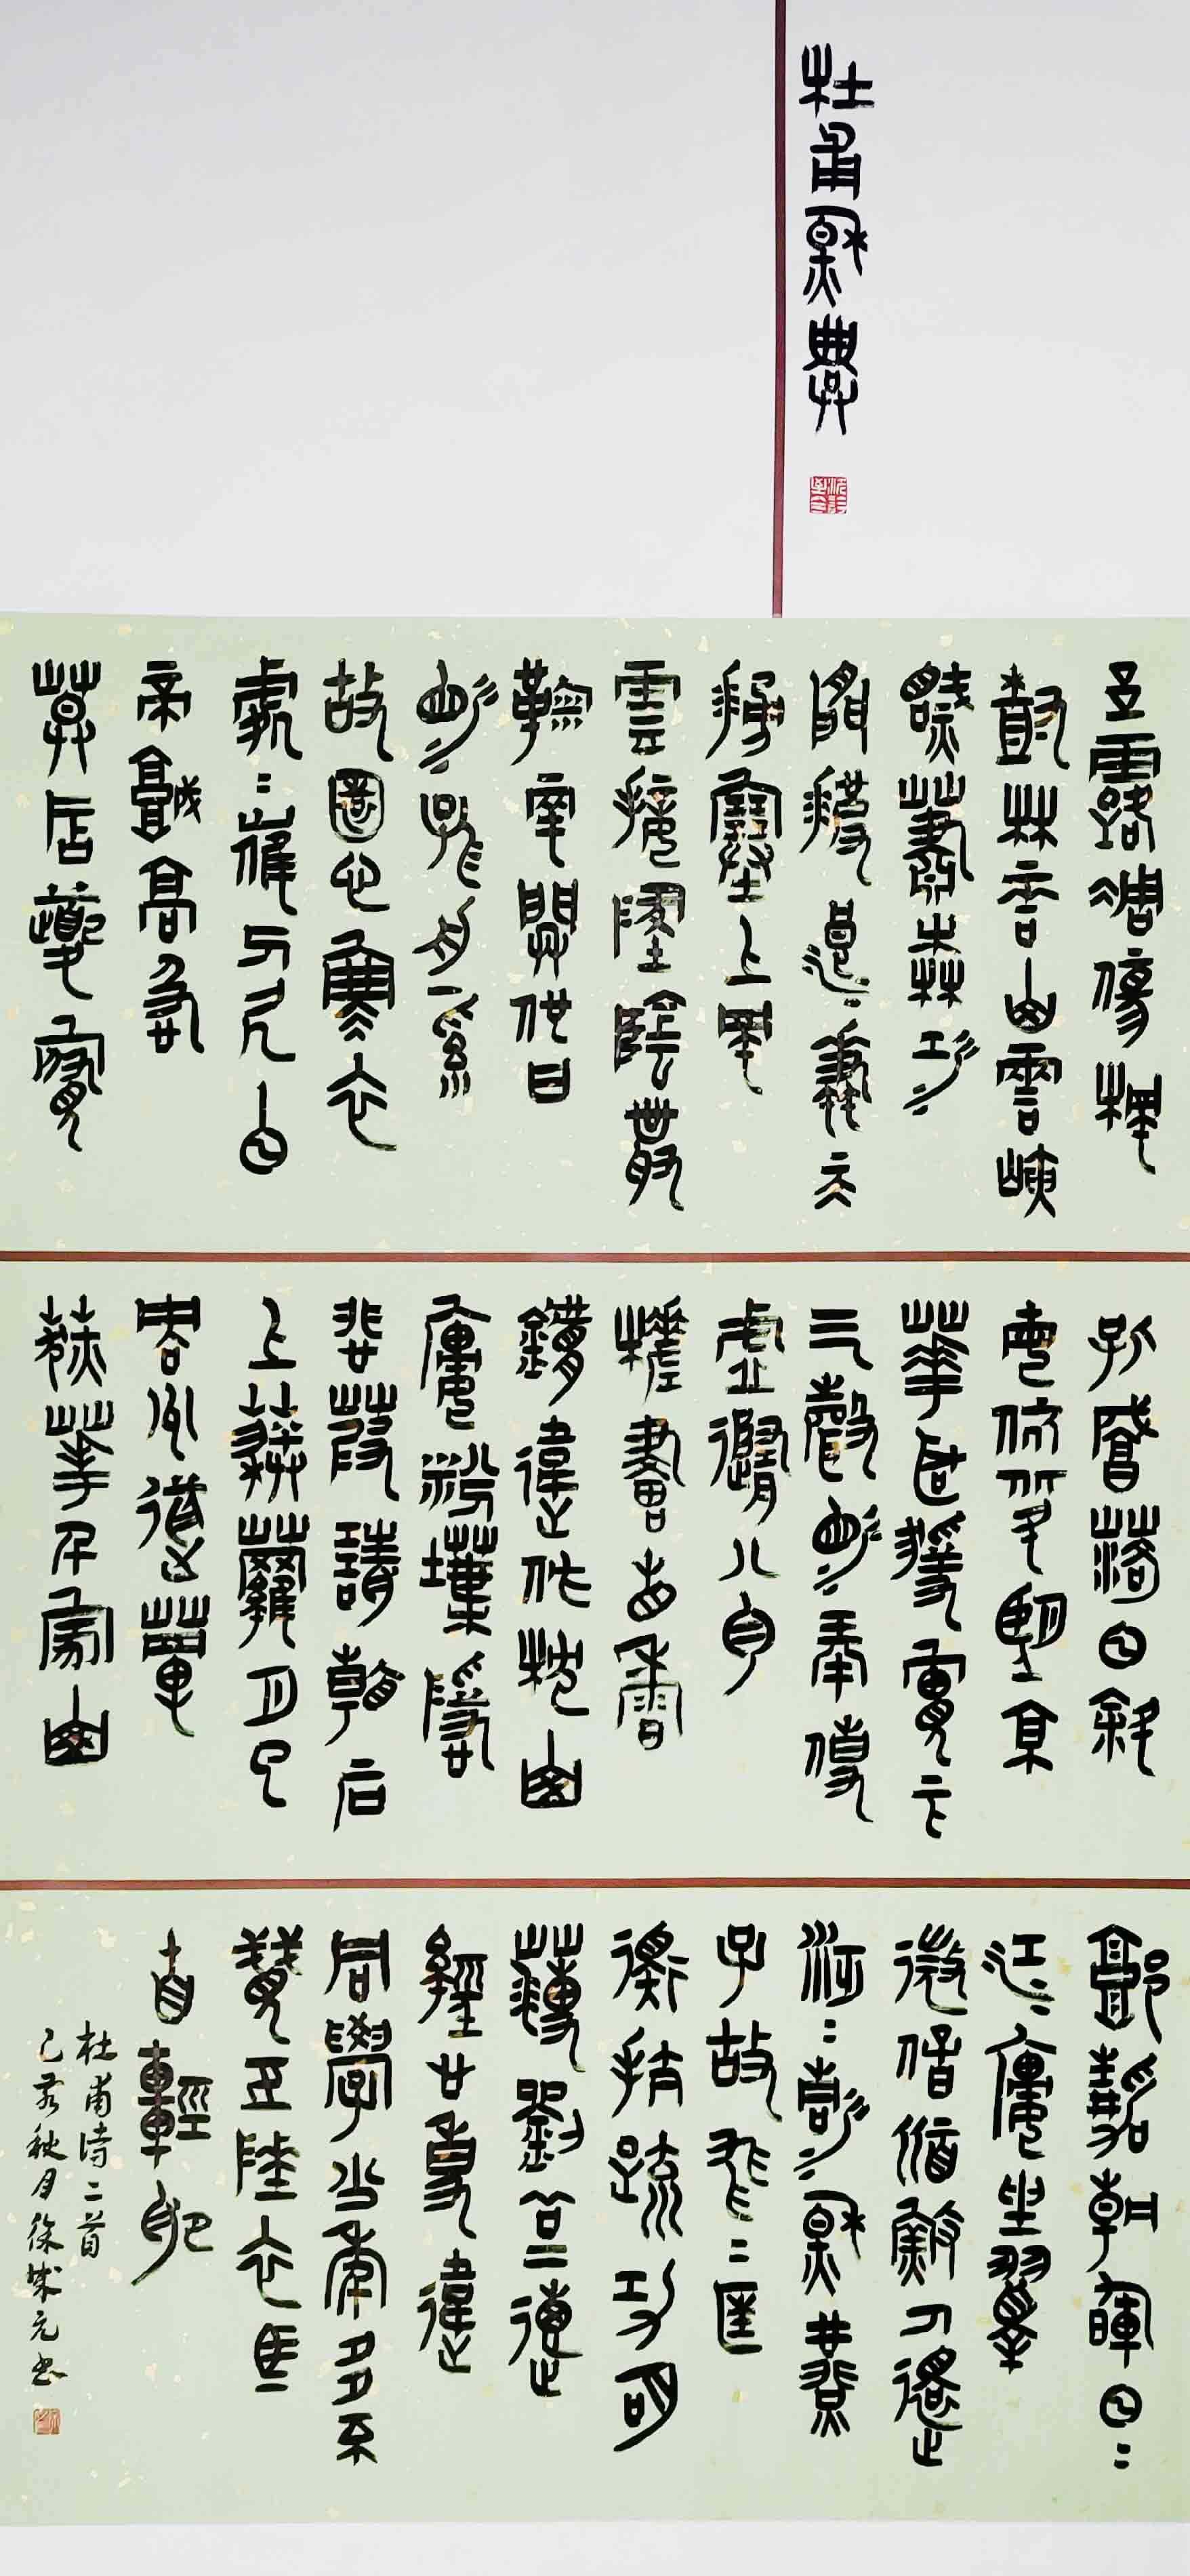 杜甫秋興
玉露凋傷楓
樹林巫山巫峽
氣蕭森江
間波浪兼天
湧塞上風
雲接地陰叢
菊兩開他日
淚孤舟一繫
故園心寒衣
處處催刀尺白
帝城高急
暮砧夔府
孤城落日斜
每依北斗望京
華聽猿實下
三聲淚奉使
虛隨八月
槎畫省香
鑪違伏枕山
樓粉堞隱
悲笳請看石
上藤蘿月已
映洲前蘆
荻花千家山
郭靜朝暉日日
江樓坐翠
微信宿漁人還
泛泛清秋燕
子故飛飛匡
衡抗疏功名
薄劉向傳
經心事違
同學少年多不
賤五陵衣馬
自輕肥
杜甫詩二首
己亥秋月徐成元書